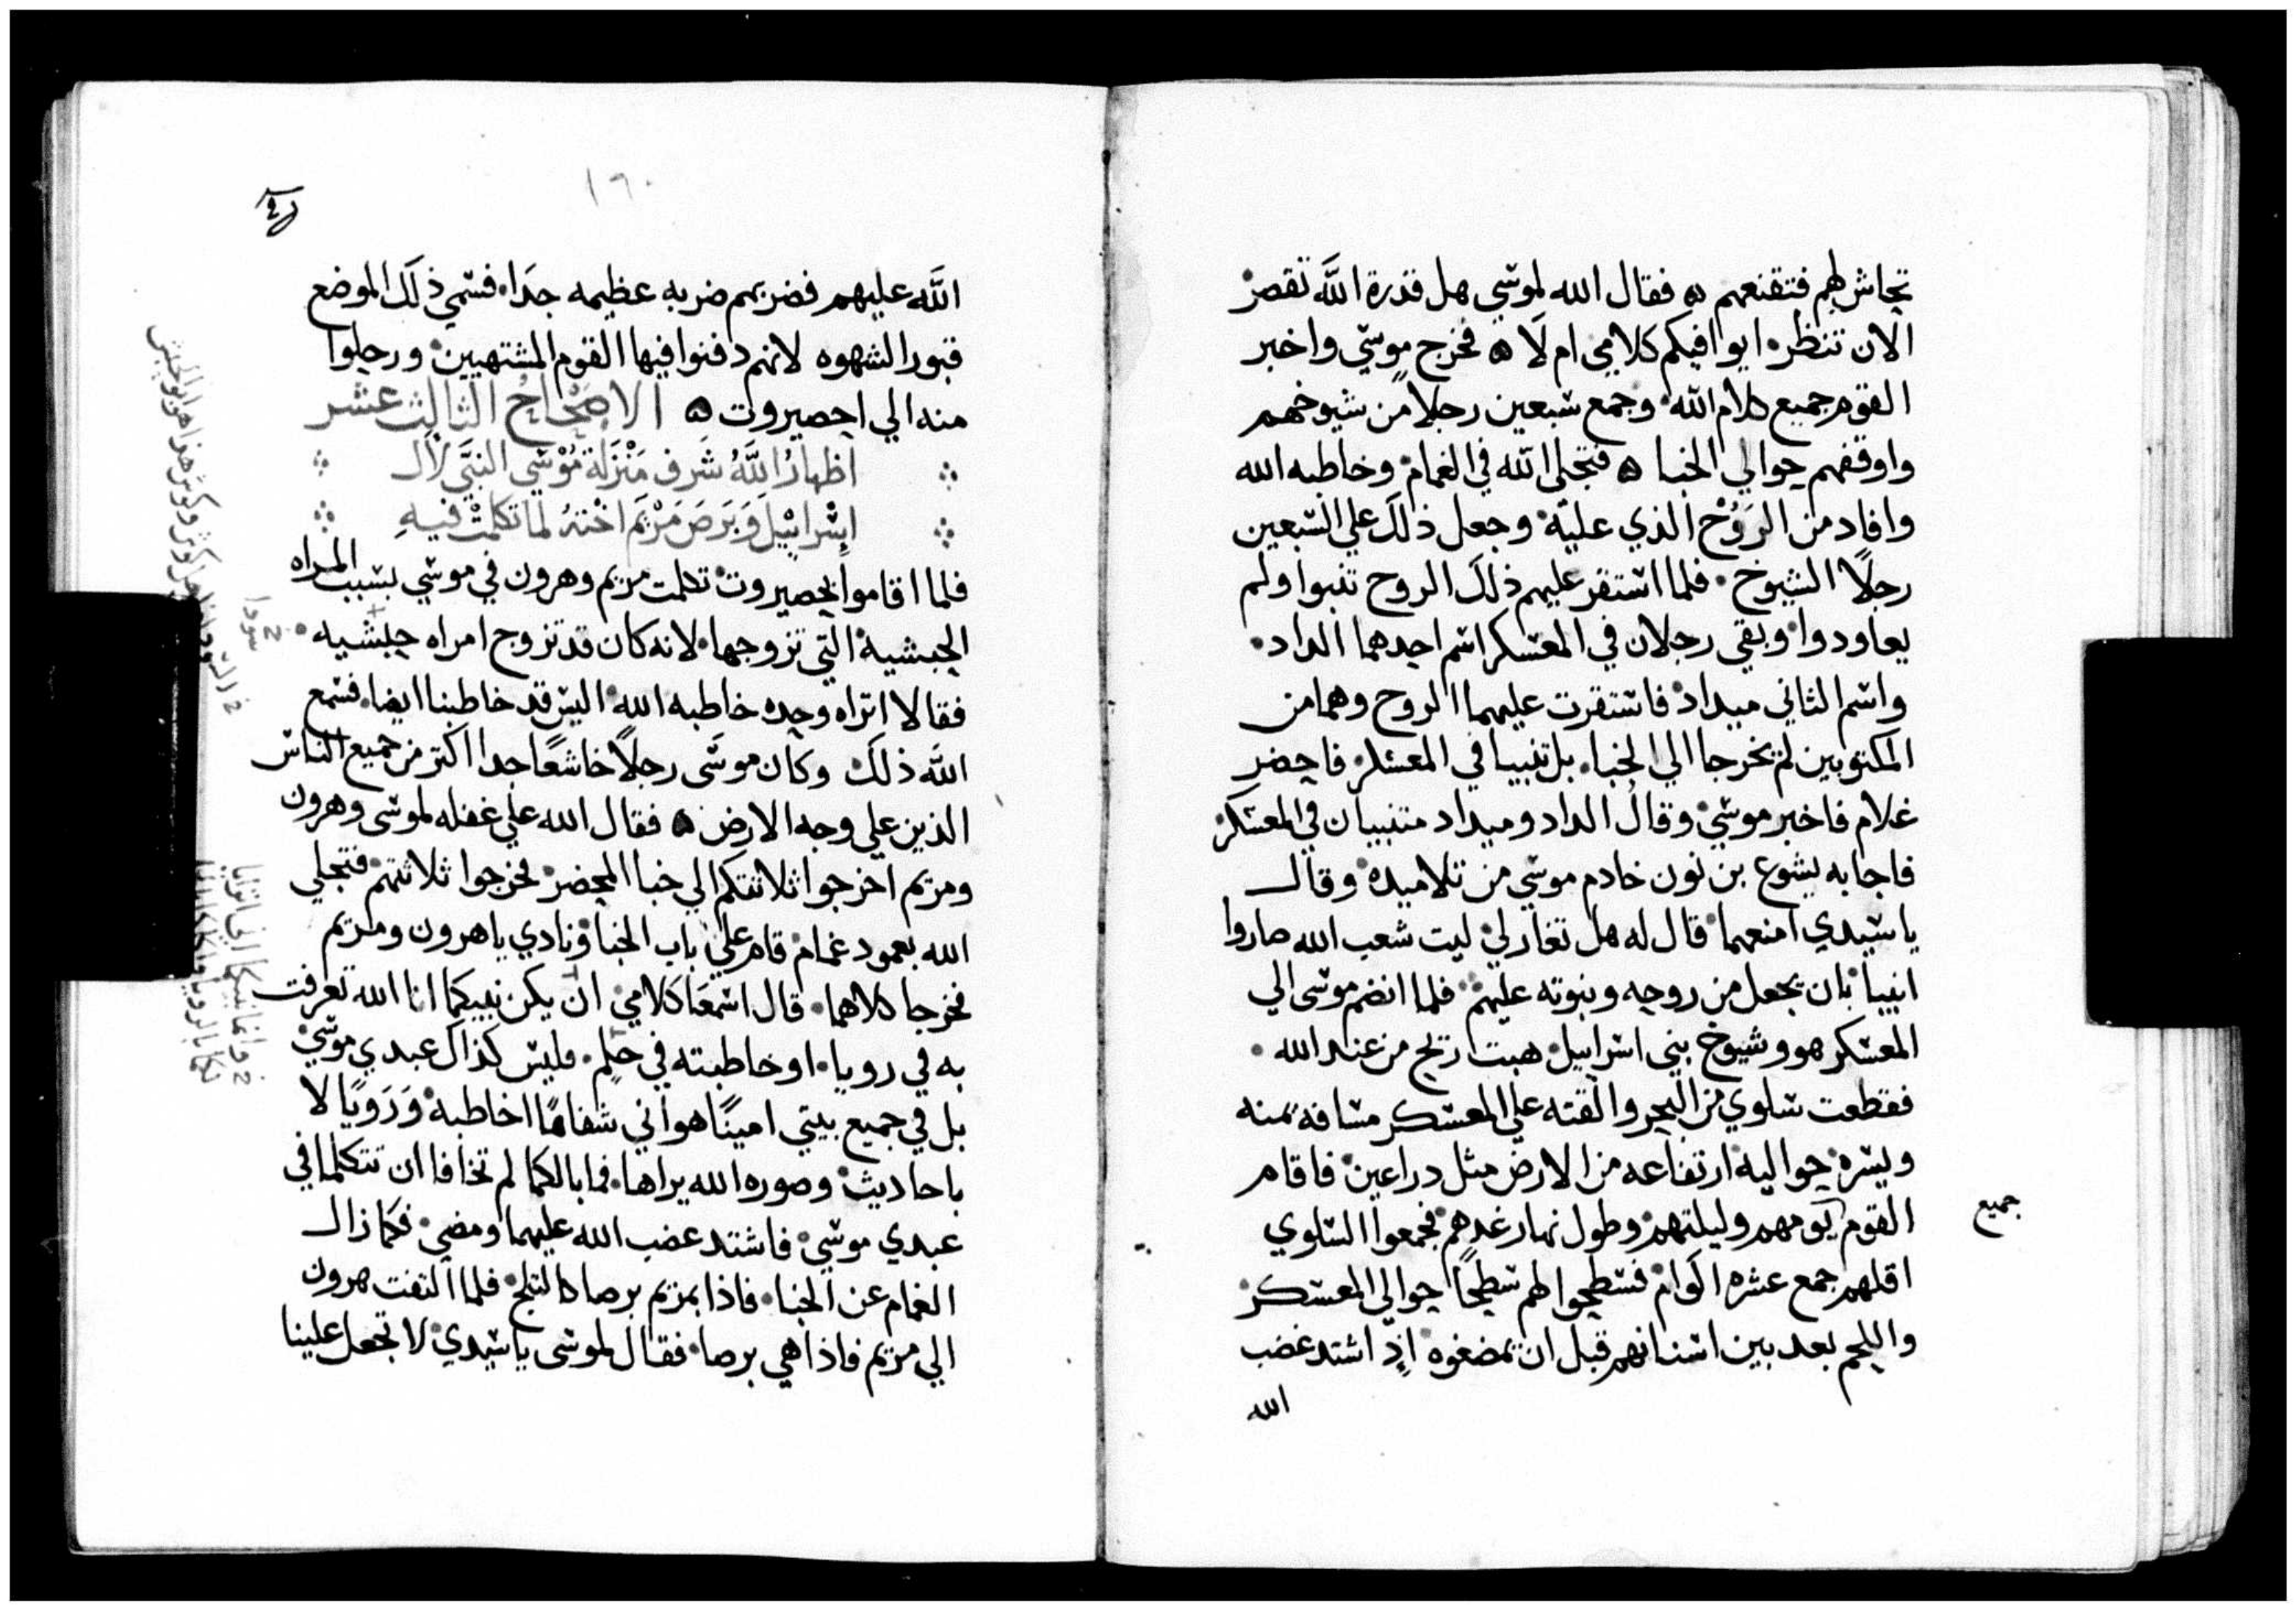 تحاش لهم فتقنعهم ۞ فقال الله لموسي هل قدرة الله تقصر
الان تنظر ايوافيكم كلامي ام لا ۞ فخرج موسي واخبر
القوم جميع كلام الله وجمع سبعين رجلا من شيوخهم
واوقفهم حوالي الخبا ۞ فتجلى الله في الغمام وخاطبه الله
وافاد من الروح الذي عليه وجعل ذلك علي السبعين
رجلا الشيوخ فلما استقر عليهم ذلك الروح تنبوا ولم
يعاودوا وبقي رجلان في المعسكر اسم احدهما الداد
واسم الثاني ميداد فاستقرت عليهما الروح وهما من
المكتوبين لم يخرجا الي الخبا بل تنبيا في المعسكر فاحضر
غلام فاخبر موسي وقال الداد وميداد متنبيان في المعسكر
فاجابه يشوع بن نون خادم موسي من تلاميده وقال
يا سيدي امنعهما قال له هل تغار لي ليت شعب الله صاروا
انبيا بان يجعل من روحه ونبوته عليهم فلما انضم موسى الي
المعسكر هو وشيوخ بني اسراييل هبت ريح من عند الله
فقطعت سلوي من البحر والقته علي المعسكر مسافه يمنه
ويسره حواليه ارتفاعه من الارض مثل دراعين فاقام
القوم يومهم وليلتهم وطول نهار غدهم فجمعوا السلوي
جميع
اقلهم جمع عشره اكوام فسطحوا لهم سطيحا حوالي المعسكر
واللحم بعد بين اسنانهم قبل ان يمضغوه اذ اشتد غضب
الله
١٦٠
الله عليهم فضربهم ضربه عظيمه جدا فسمي ذلك الموضع
قبور الشهوه لانهم دفنوا فيها القوم المشتهيين ورحلوا
منه الي احصيروت ۞ الاصحاح الثالث عشر
اظهار الله شرف منزلة موسى النبي لال
اسراييل وبرص مريم اخته لما تكلمت فيه
فلما اقاموا بحصيروت تكلمت مريم وهرون في موسي بسبب المراه
الحبشية التي تزوجها لانه كان قد تزوج امراه حبشيه
فقالا اتراه وحده خاطبه الله اليس قد خاطبنا ايضا فسمع
الله ذلك وكان موسى رجلا خاشعا جدا اكتر من جميع الناس
الذين علي وجه الارض ۞ فقال الله علي غفله لموسى وهرون
ومريم اخرجوا ثلاثتكم الي خبا المحضر فخرجوا ثلاثتهم فتجلي
الله بعمود غمام قام علي باب الخبا ونادي ياهرون ومريم
فخرجا كلاهما قال اسمعا كلامي ان يكن نبيكما انا الله تعرفت
به في رويا او خاطبته في حلم فليس كذاك عبدي موسي
بل في جميع بيتي امينا هو اني شفاها اخاطبه ورويا لا
باحاديث وصوره الله يراها فما بالكما لم تخافا ان تتكلما في
عبدي موسي فاشتد غضب الله عليهما ومضي فكما زال
الغمام عن الخبا فاذا بمريم برصا كالثلج فلما التفت هرون
الي مريم فاذا هي برصا فقال لموسى يا سيدي لا تجعل علينا
سودا